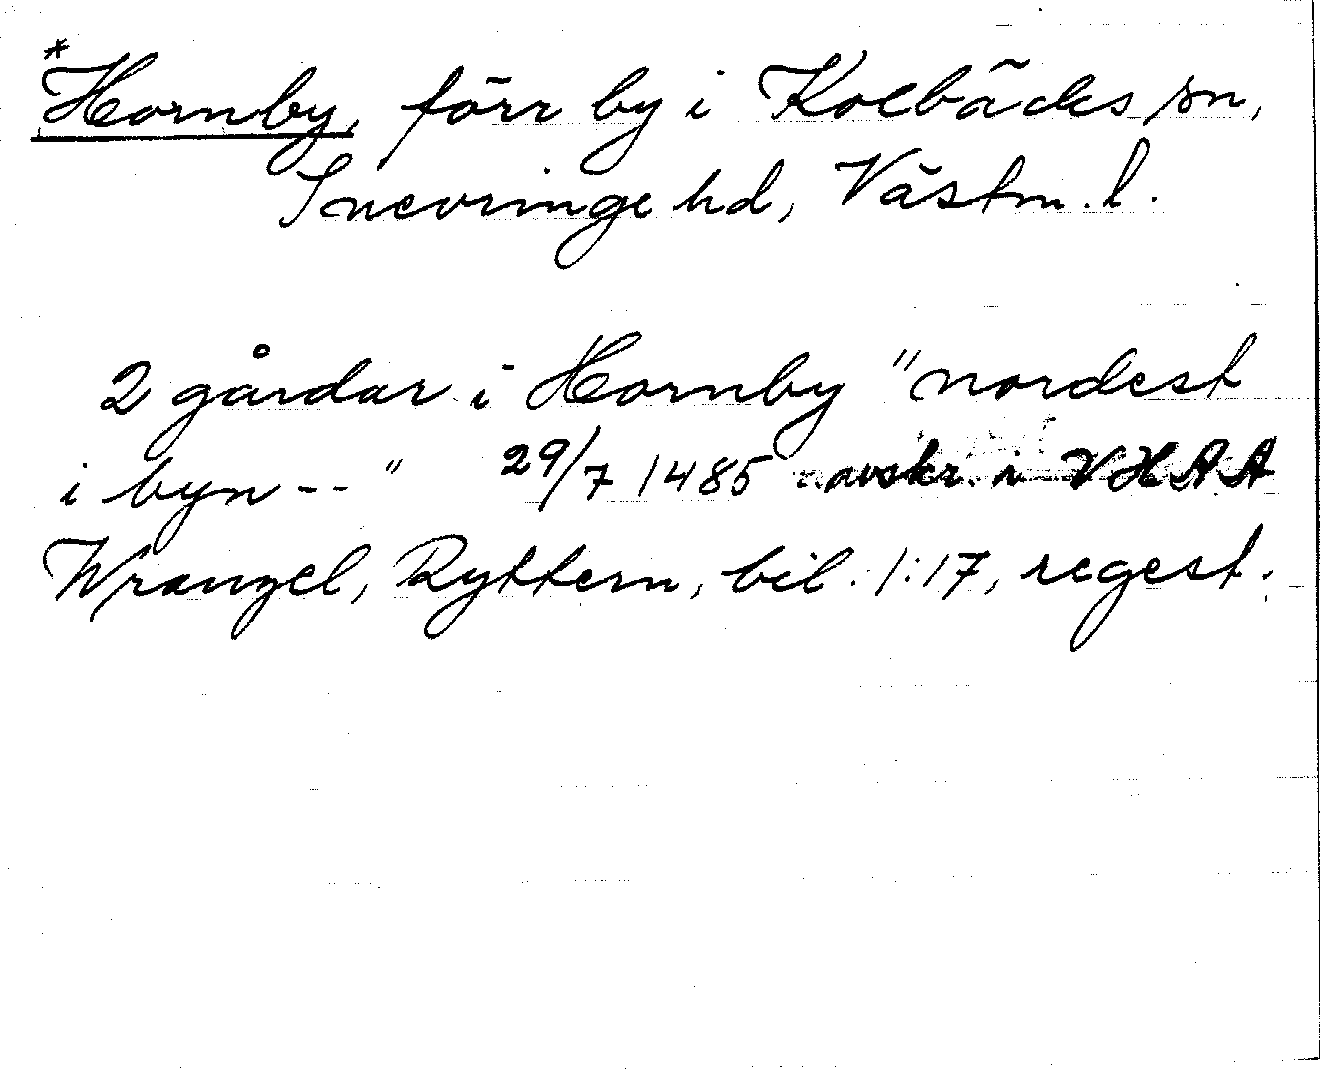 *Hornby, förr by i Kolbäcks sn,
Snevringe hd, Västm. l.
2 gårdar i Hornby "nordest
i byn -- " 29/7 1485 avskr. i VHAA
Wrangel, Ryttern, bil. 1:17, regest.